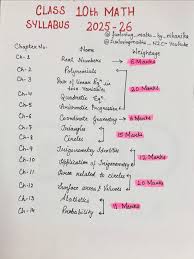 CLASS 10th MATH
SYLLABUS 2025-26
Chapter No. Name Weightage
Ch-1 Real Numbers → 6 Marks
Ch-2 Polynomials
Ch-3 Pair of linear Eqⁿ in two variables
Ch-4 Quadratic Eqⁿ
20 Marks
Ch-5 Arithmetic Progression
Ch-6 Coordinate Geometry → 6 Marks
Ch-7 Triangles
Ch-8 Circles
15 Marks
Ch-9 Trigonometry Identities
Ch-10 Application of Trigonometry
12 Marks
Ch-11 Areas related to circles
Ch-12 Surface areas & Volumes
10 Marks
Ch-13 Statistics
Ch-14 Probability